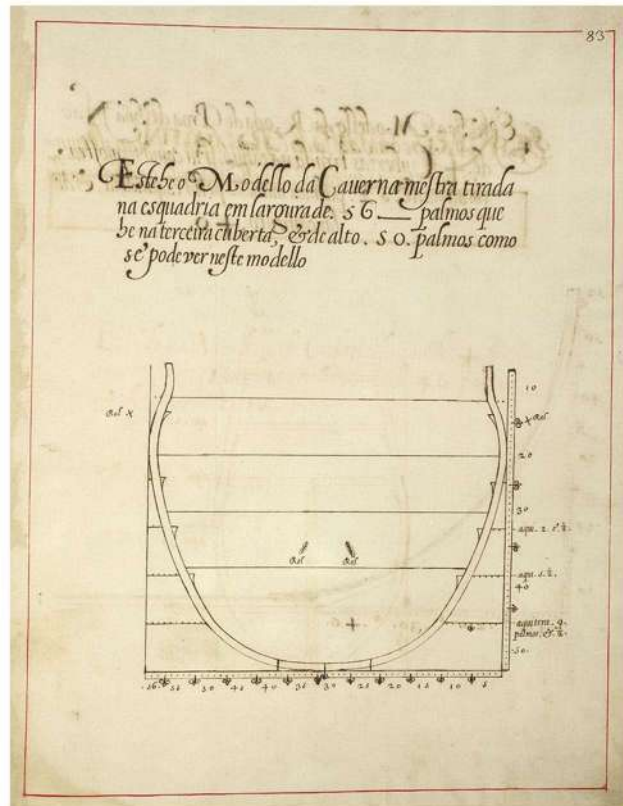 83
Este he o Modello da Cauerna mestra tirada
na esquadria em largura de. 56 palmos que
he na terceira cuberta, & de alto. 50. palmos como
se pode ver neste modello
10
Rol x
x Rol
20
30
aqui. 2. 
Rol Rol
aqui. 5. ½.
40
aqui tem. 9.
palmos. & ½.
50.
.56. 55 50 45 40 35 30 25 20 15 10 5